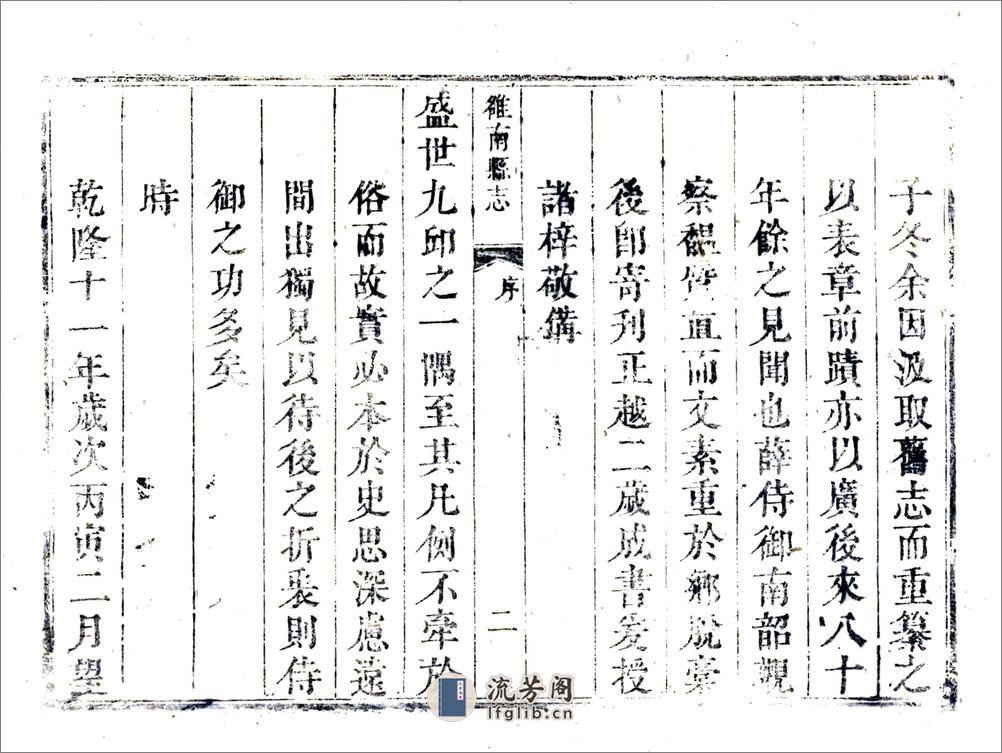 子冬余因汲取舊志而重纂之
以表章前蹟亦以廣後來八十
年餘之見聞也薛侍御南韶觀
察醖質直而文素重於鄉脫稾
後郎寄刊正越二歲成書爰授
諸梓敬備
雒南縣志
序
二
盛世九邱之一隅至其凡例不牽於
俗而故實必本於史思深慮遠
間出獨見以待後之折衷則侍
御之功多矣
時
乾隆十一年歲次丙寅二月望
流芳阁
lfglib.cn